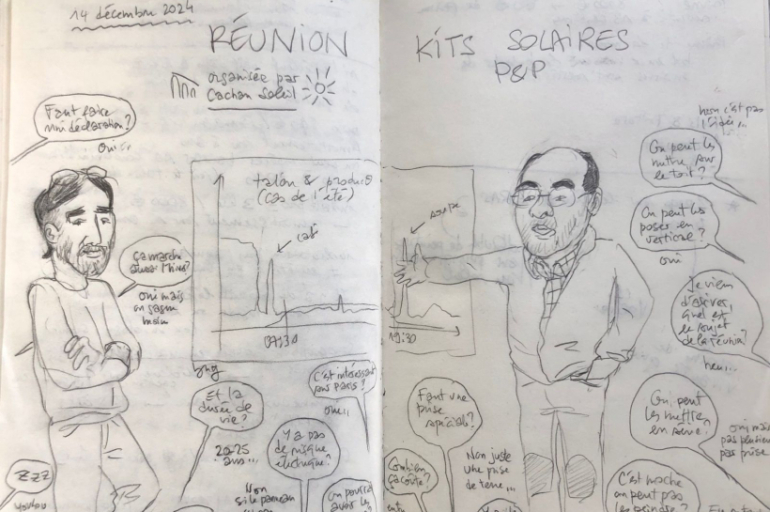 14 décembre 2024
RÉUNION KITS SOLAIRES
P&P
organisée par
Cachan Soleil
Faut faire
une déclaration?
oui..
talon & produc
(cas de l'été)
café
07:30
19:30
oui mais
Et la
durée de
vie?
20-25
ans...
C'est intéressant
sur Paris?
oui...
Y a pas
de risque
électrique?
Non
si le panneau
ZZZ
non c'est pas
l'idée...
On peut les
mettre sur
le toit?
On peut les
poser en
vertical?
oui
Je viens
d'arriver,
quel est
le sujet
de la réunion?
heu...
Faut une
prise
spéciale?
Non juste
une prise
de terre...
Combien
ça coûte?
On peut
les mettre
en série?
oui mais
pas plusieurs
par prise
C'est moche
on peut pas
les